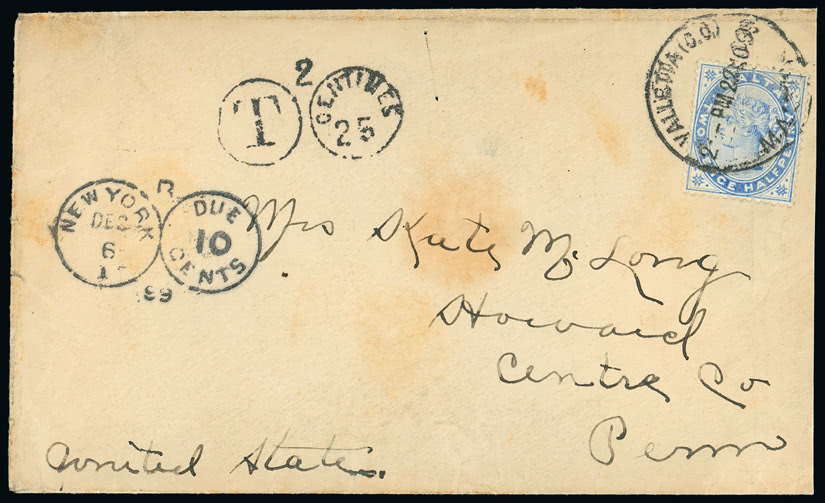 2
T
CENTIMES
25
VALLETTA (G.O.)
MALTA
TWO PENCE HALFPENNY
NEW YORK
DEC
6
99
DUE
10
CENTS
Mrs Kate M. Long
Howard
Centre Co
Penn
United States.